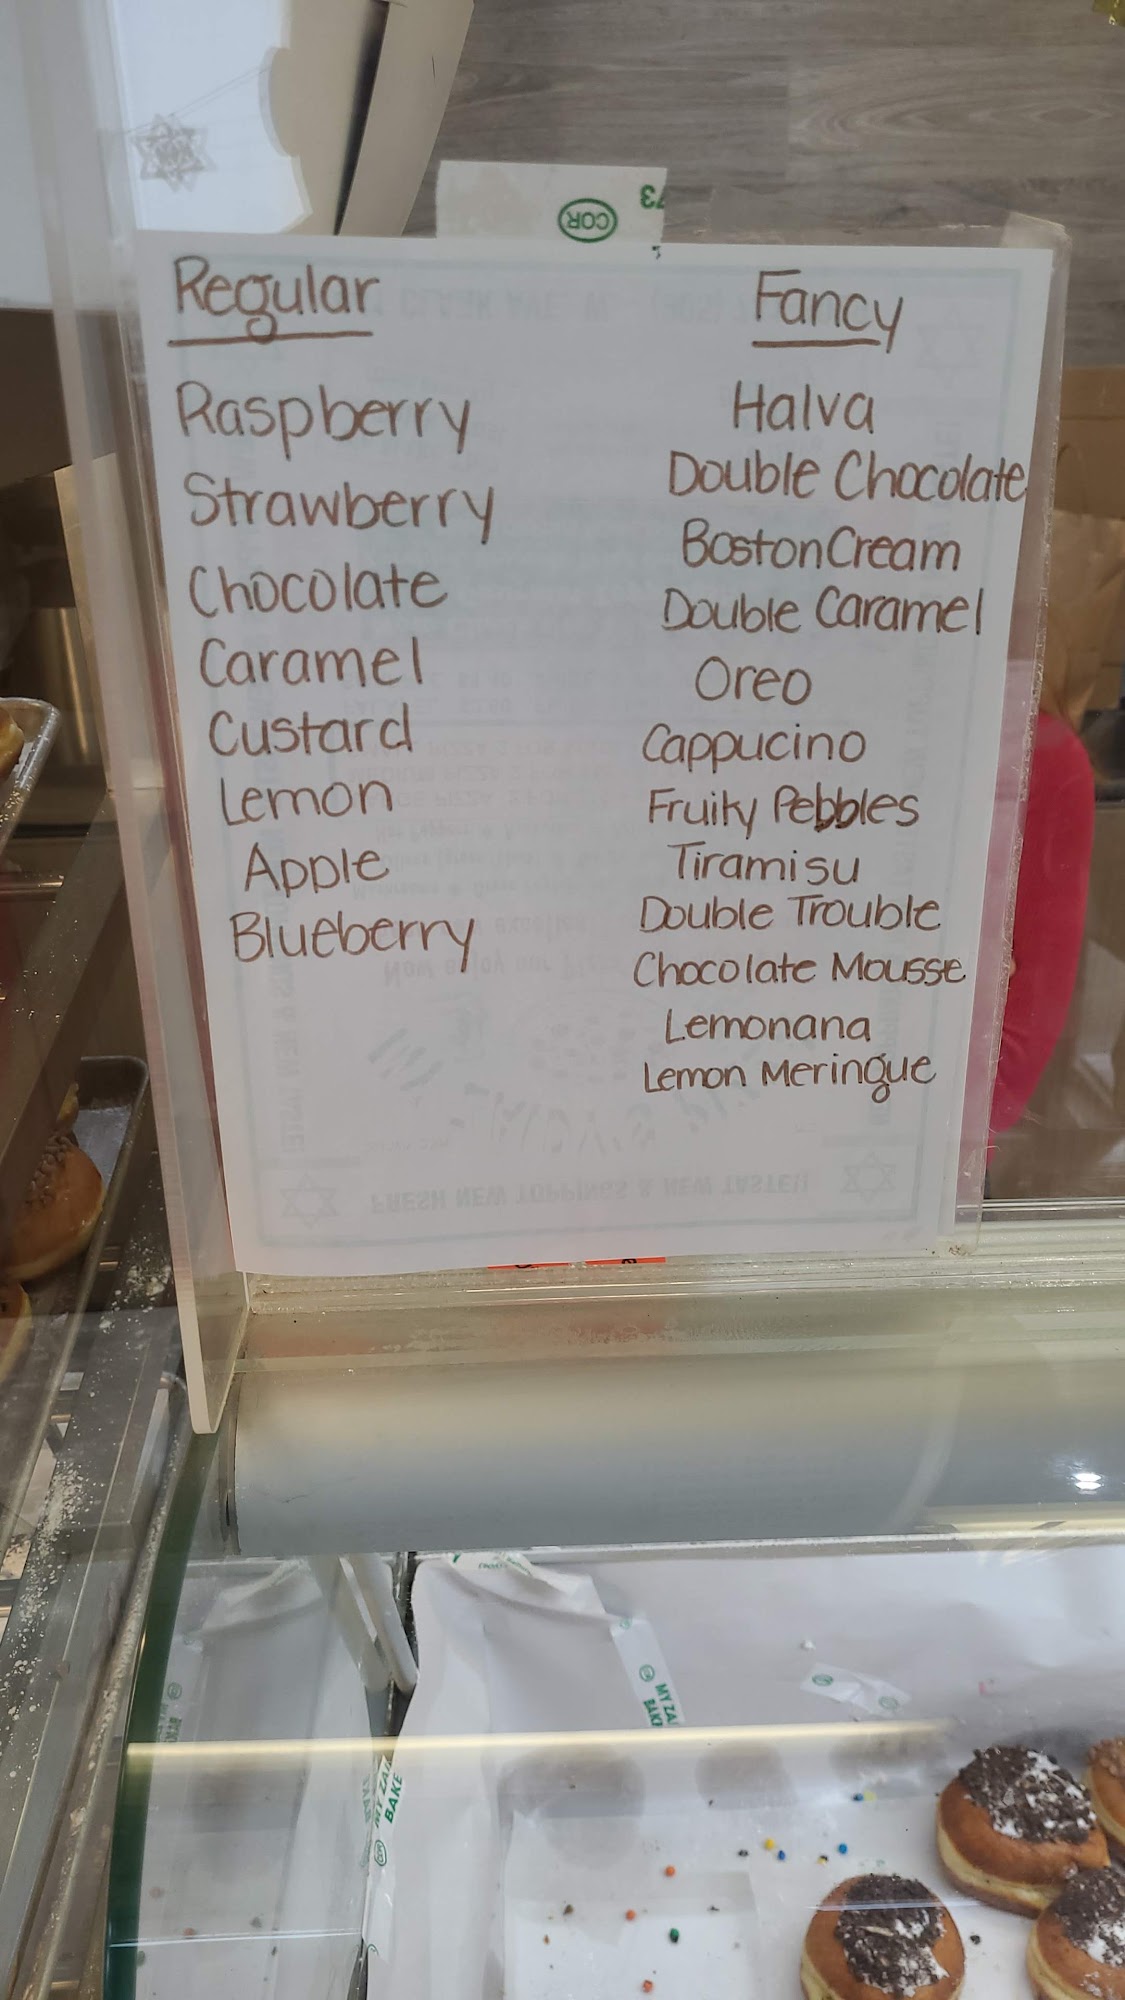 COR
73
Regular
Raspberry
Strawberry
Chocolate
Caramel
Custard
Lemon
Apple
Blueberry
Fancy
Halva
Double Chocolate
Boston Cream
Double Caramel
Oreo
Cappucino
Fruity Pebbles
Tiramisu
Double Trouble
Chocolate Mousse
Lemonana
Lemon Meringue
FRESH NEW TOPPINGS & NEW TASTE!!
MY ZA
BAKE